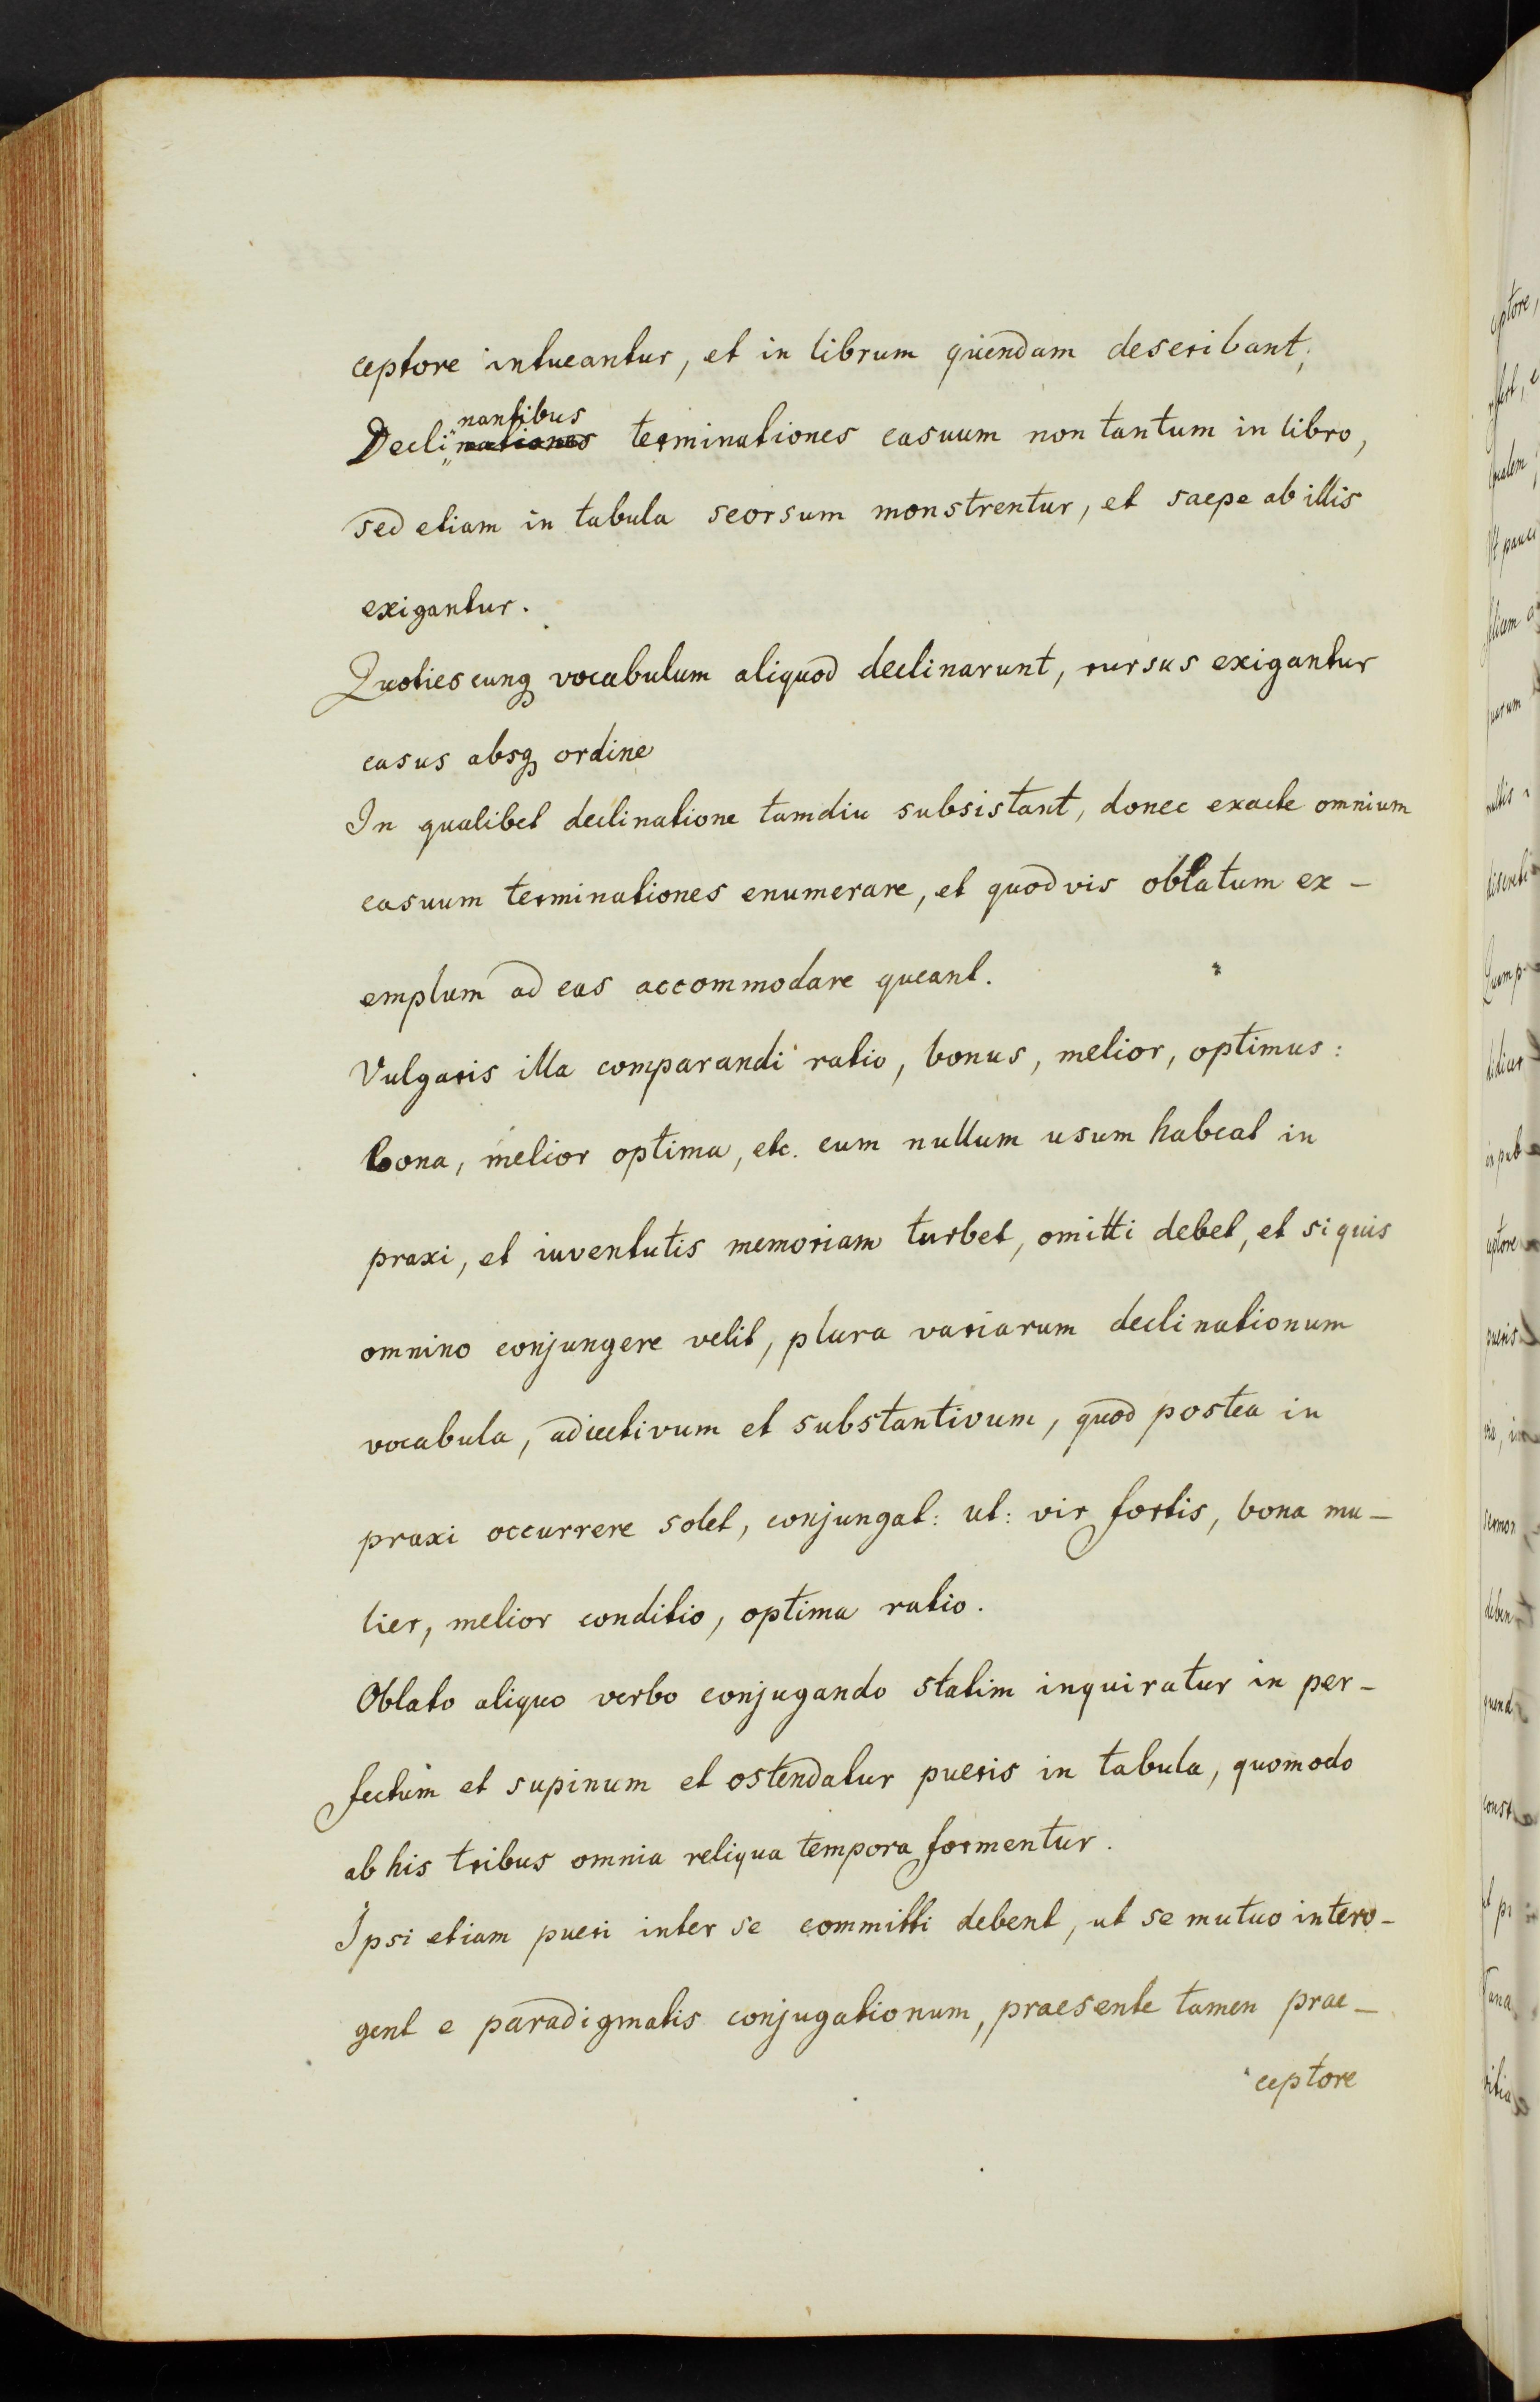 ceptore intueantur, et in librum quendam describant;
Declinationes nantibus terminationes casuum non tantum in libro,
sed etiam in tabula seorsum monstrentur, et saepe ab illis
exigantur.
Quotiescunq vocabulum aliquod declinarunt, rursus exigantur
casus absq ordine
In qualibet declinatione tamdiu subsistant, donec exacte omnium
casuum terminationes enumerare, et quodvis oblatum ex-
emplum ad eas accommodare queant.
Vulgaris illa comparandi ratio, bonus, melior, optimus:
bona, melior optima, etc. cum nullum usum habeat in
praxi, et iuventutis memoriam turbet, omitti debet, et si quis
omnino conjungere velit, plura variarum declinationum
vocabula, adiectivum et substantivum, quod postea in
praxi occurrere solet, conjungat: ut: vir fortis, bona mu-
lier, melior conditio, optima ratio.
Oblato aliquo verbo conjugando statim inquiratur in per-
fectum et supinum et ostendatur pueris in tabula, quomodo
ab his tribus omnia reliqua tempora formentur.
Ipsi etiam pueri inter se committi debent, ut se mutuo intero-
gent e paradigmatis conjugationum, praesente tamen prae-
ceptore